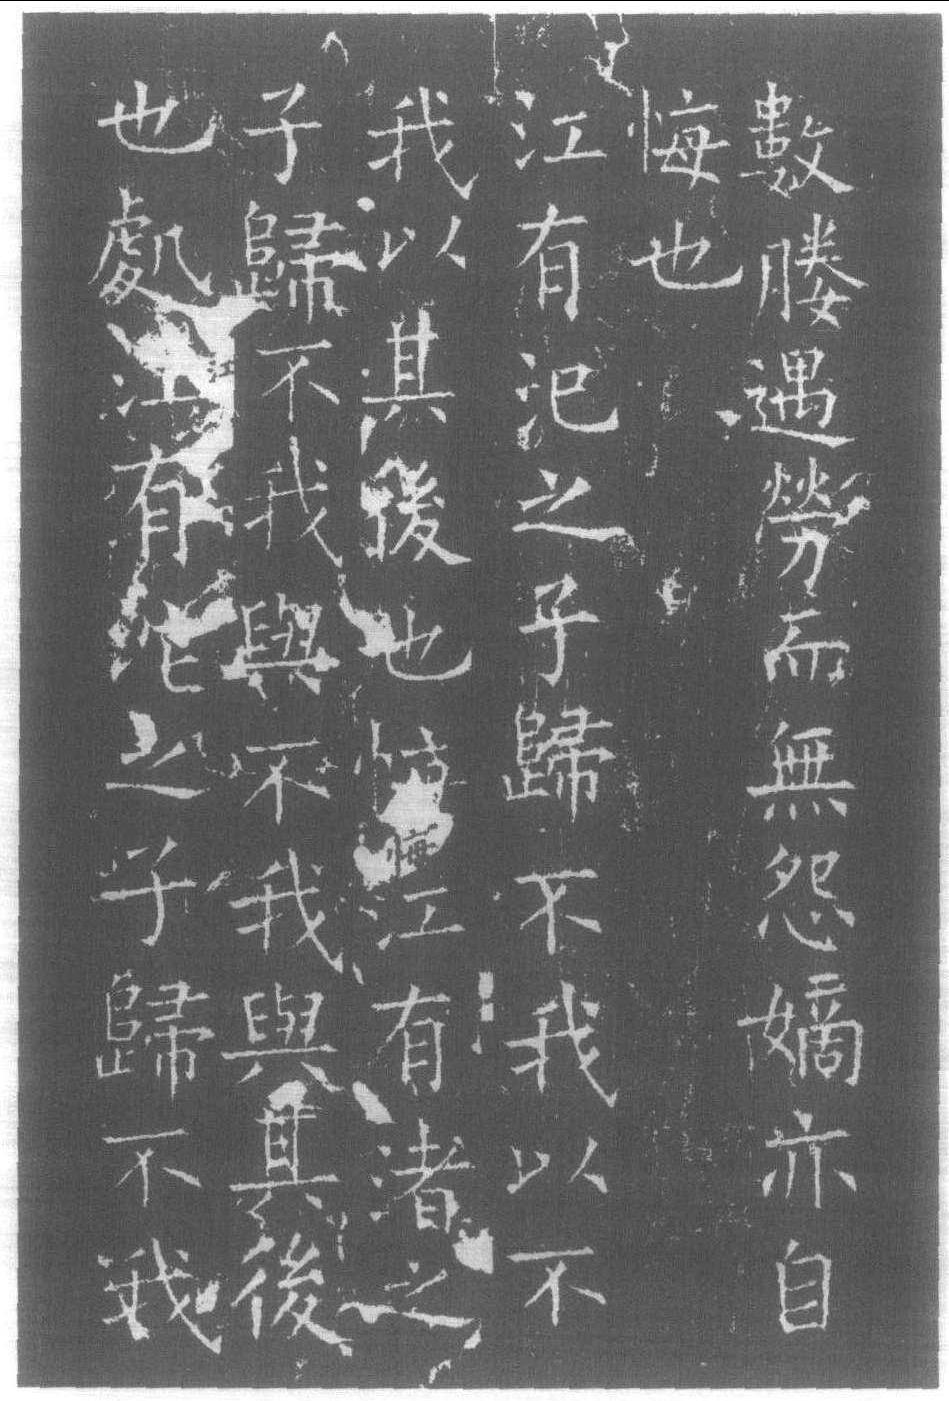 數媵遇勞而無怨嫡亦自
悔也
江有汜之子歸不我以不
我以其後也悔江有渚之
子歸不我與不我與其後
也處江有沱之子歸不我